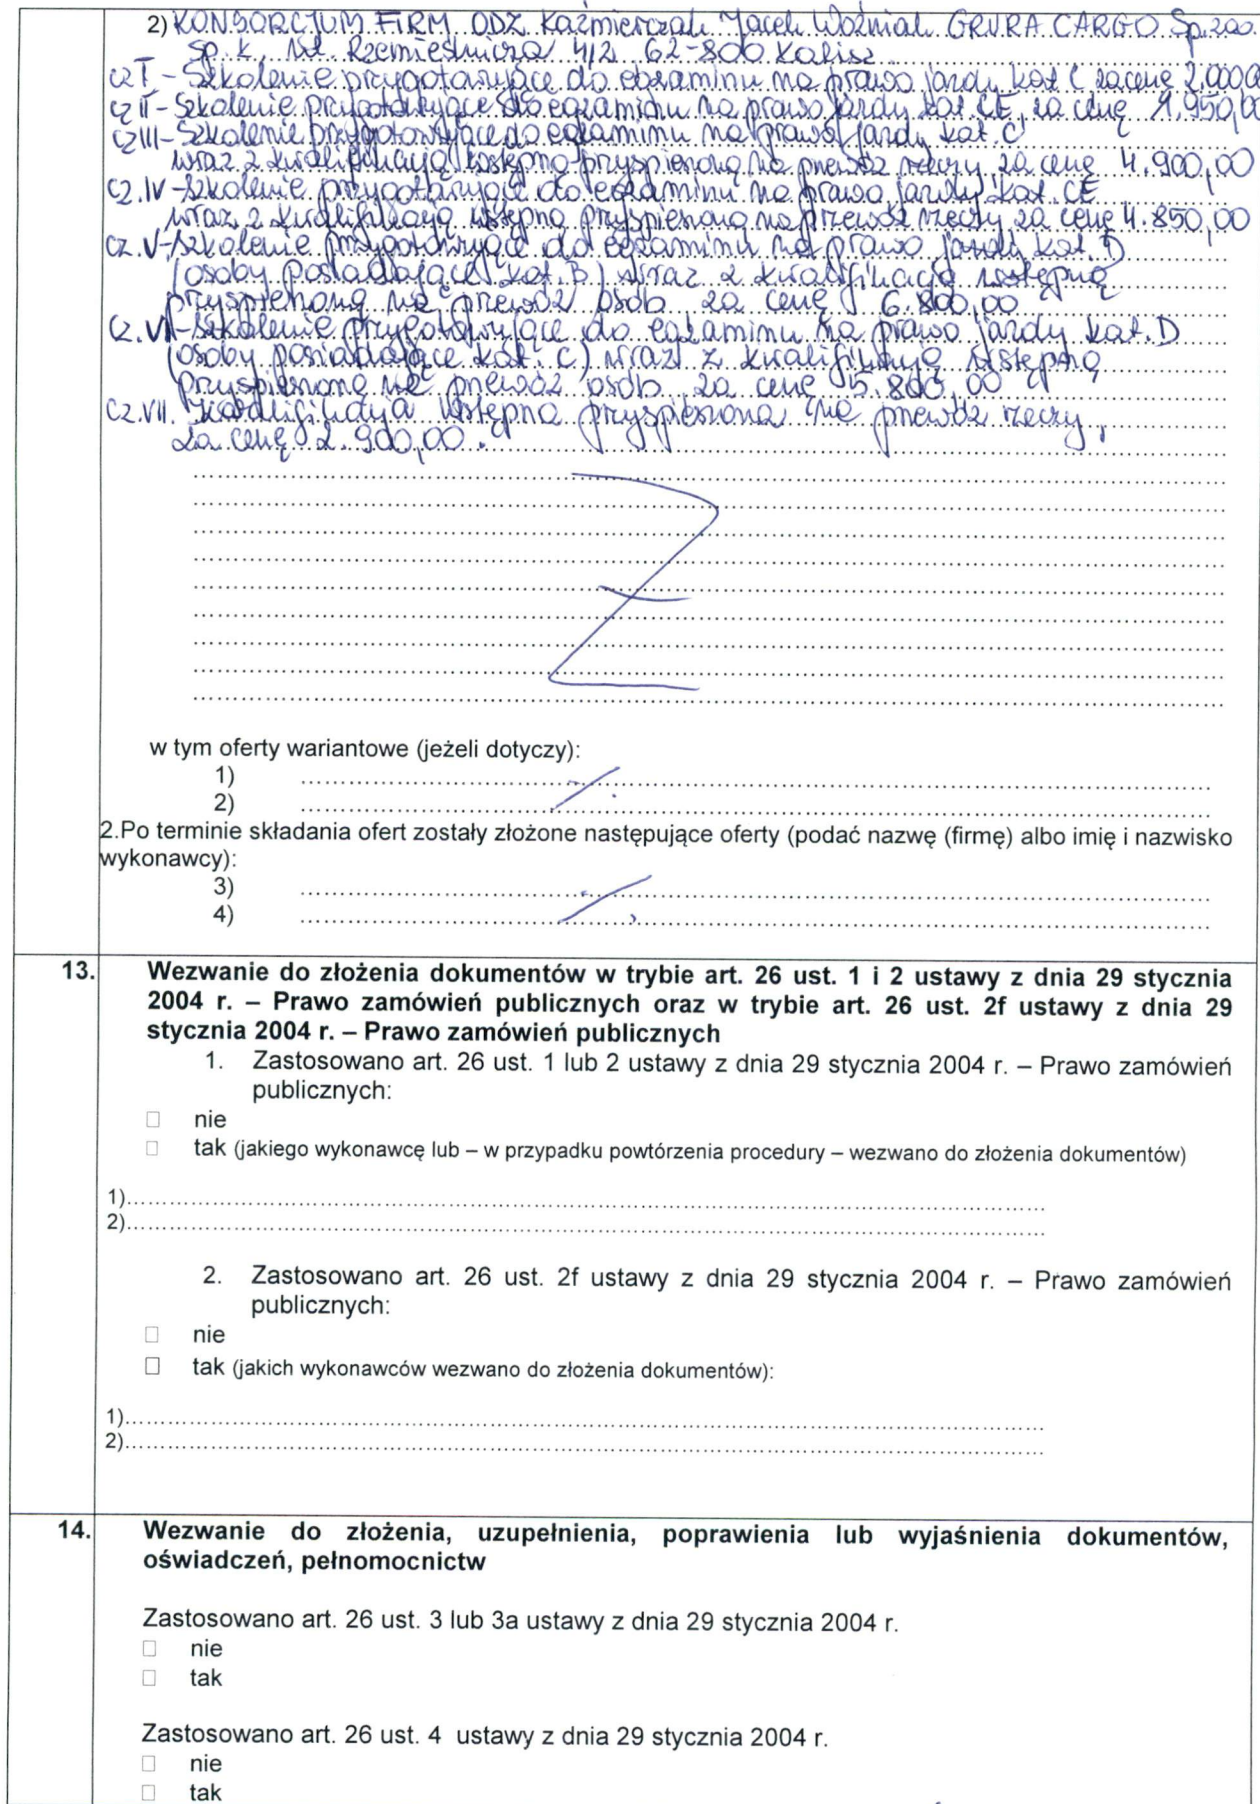 2) KONSORCJUM FIRM ODZ Kaźmierczak Jacek Woźniak GRUPA CARGO Sp. z o.o.
Sp. k, ul. Rzemieślnicza 4/2 62-800 Kalisz
cz I - Szkolenie przygotowujące do egzaminu na prawo jazdy kat C za cenę 2.000,0
cz II - Szkolenie przygotowujące do egzaminu na prawo jazdy kat. CE, za cenę 1.950,0
cz III - Szkolenie przygotowujące do egzaminu na prawo jazdy kat. C
wraz z kwalifikacją wstępną przyspieszoną na przewóz rzeczy, za cenę 4.900,00
cz. IV - Szkolenie przygotowujące do egzaminu na prawo jazdy kat. CE
wraz z kwalifikacją wstępną przyspieszoną na przewóz rzeczy za cenę 4.850,00
cz. V - Szkolenie przygotowujące do egzaminu na prawo jazdy kat. D
(osoby posiadające kat. B) wraz z kwalifikacją wstępną
przyspieszoną na przewóz osób za cenę 6.800,00
cz. VI - Szkolenie przygotowujące do egzaminu na prawo jazdy kat. D
(osoby posiadające kat. C) wraz z kwalifikacją wstępną
przyspieszoną na przewóz osób za cenę 5.800,00
cz. VII. Kwalifikacja wstępna przyspieszona na przewóz rzeczy,
za cenę 2.900,00.
w tym oferty wariantowe (jeżeli dotyczy):
1)
2)
2.Po terminie składania ofert zostały złożone następujące oferty (podać nazwę (firmę) albo imię i nazwisko
wykonawcy):
3)
4)
13. Wezwanie do złożenia dokumentów w trybie art. 26 ust. 1 i 2 ustawy z dnia 29 stycznia
2004 r. – Prawo zamówień publicznych oraz w trybie art. 26 ust. 2f ustawy z dnia 29
stycznia 2004 r. – Prawo zamówień publicznych
1. Zastosowano art. 26 ust. 1 lub 2 ustawy z dnia 29 stycznia 2004 r. – Prawo zamówień
publicznych:
□ nie
□ tak (jakiego wykonawcę lub – w przypadku powtórzenia procedury – wezwano do złożenia dokumentów)
1)
2)
2. Zastosowano art. 26 ust. 2f ustawy z dnia 29 stycznia 2004 r. – Prawo zamówień
publicznych:
□ nie
□ tak (jakich wykonawców wezwano do złożenia dokumentów):
1)
2)
14. Wezwanie do złożenia, uzupełnienia, poprawienia lub wyjaśnienia dokumentów,
oświadczeń, pełnomocnictw
Zastosowano art. 26 ust. 3 lub 3a ustawy z dnia 29 stycznia 2004 r.
□ nie
□ tak
Zastosowano art. 26 ust. 4 ustawy z dnia 29 stycznia 2004 r.
□ nie
□ tak